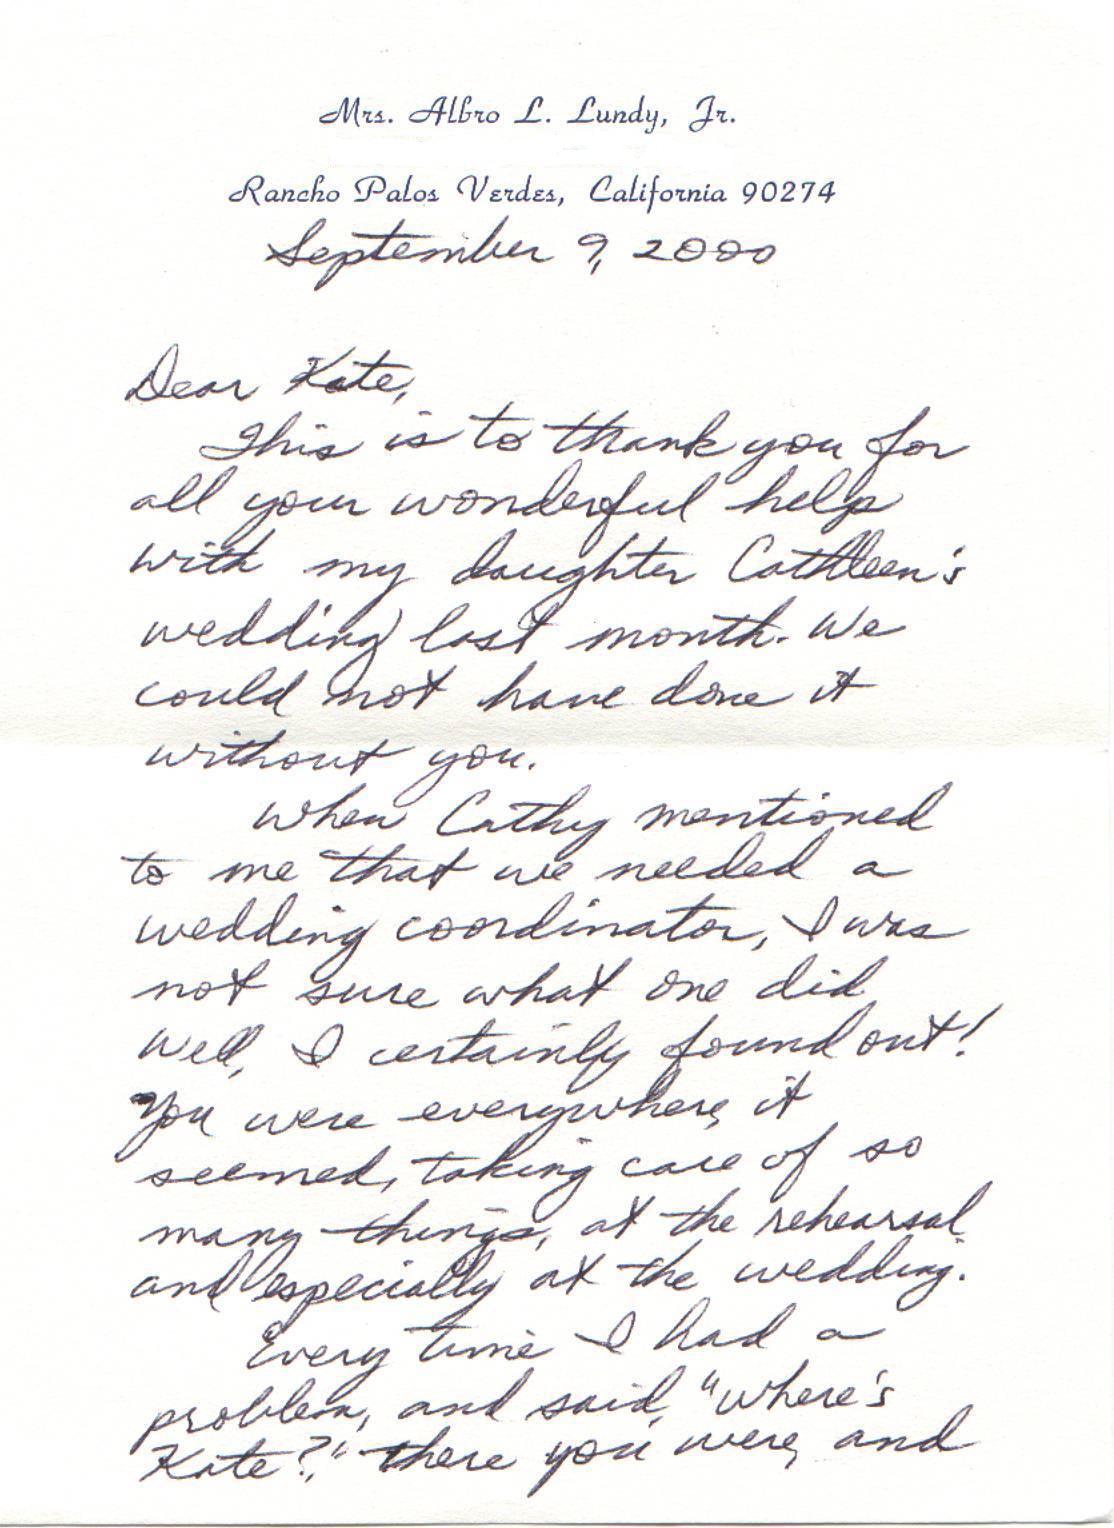 Mrs. Albro L. Lundy, Jr.
Rancho Palos Verdes, California 90274
September 9, 2000
Dear Kate,
This is to thank you for
all your wonderful help
with my daughter Cathleen's
wedding last month. We
could not have done it
without you.
When Cathy mentioned
to me that we needed a
wedding coordinator, I was
not sure what one did.
Well, I certainly found out!
You were everywhere, it
seemed, taking care of so
many things, at the rehearsal
and especially at the wedding.
Every time I had a
problem, and said, "Where's
Kate?," there you were, and